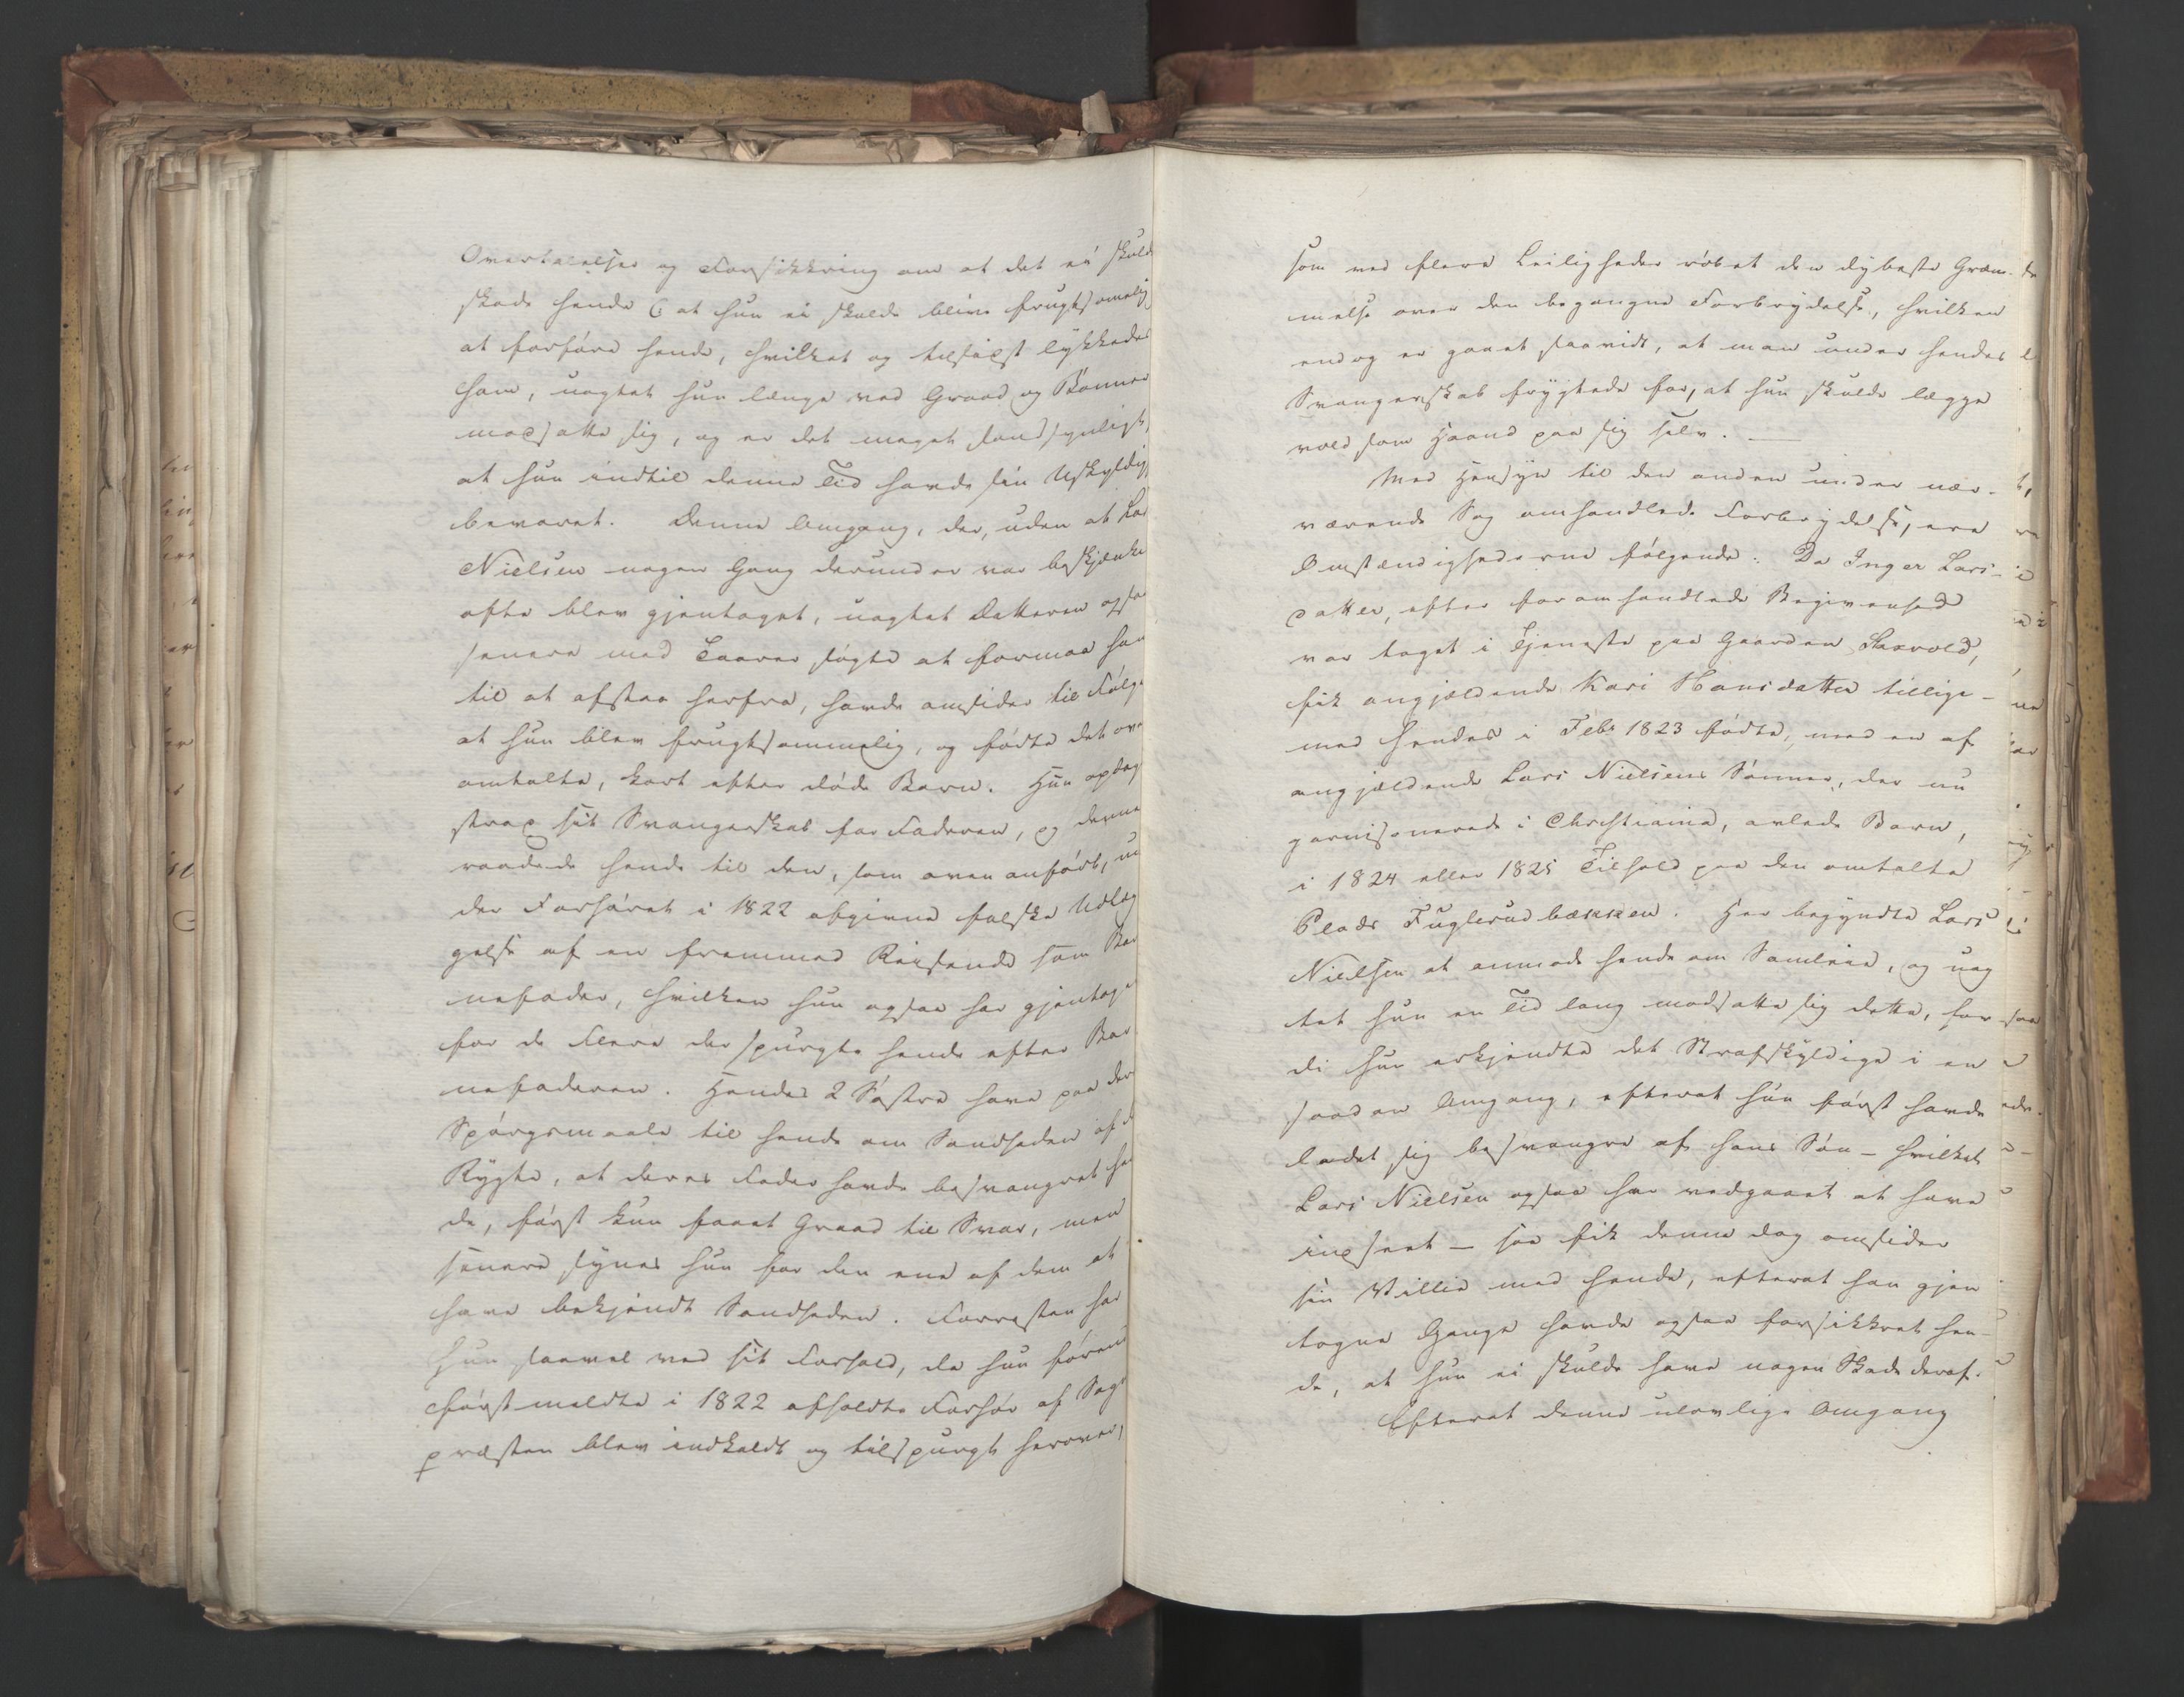 Overtalelser og Forsikkring om at det ei skuld
skade hende (: at hun ei skulde blive frugtsomelig
at forføre hende, hvilket og tilsidst lykkedes
ham, uagtet hun længe ved Graad og Bønner
modsatte sig, og er det meget sandsynligt,
at hun indtil denne Tid havde sin Uskyldig
bevaret. Denne Omgang, der, uden at Lar
Nielsen nogen Gang derunder var beskjenke
ofte blev gjentaget, uagtet Datteren ogsaa
senere med Taarer søgte at formaae ha
til at afstaae herfra, havde omsider til Følge
at hun blev frugtsommelig, og fødte det ove
omtalte, kort efter døde Barn. Hun opdag
strax sit Svangerskab for Faderen, og denne
raadede hende til den, som oven anført, un
der Forhøret i 1822 afgivne falske Udlæg
gelse af en fremmed Reisende som Bar
nefader, hvilken hun ogsaa har gjentage
for de Flere der spurgte hende efter Bar
nefaderen. Hendes 2 Søstre have paa der
Spørgsmaale til hende om Sandheden af d
Rygte, at deres Fader havde besvangret he
de, først kun faaet Graad til Svar, men
senere synes hun for den ene af dem at
have bekjendt Sandheden. Forresten har
hun saavel ved sit Forhold, da hun føren
førstmeldte i 1822 afholdte Forhør af Sogne
præsten blev indkaldt og tilspurgt herover,
som ved flere Leiligheder røbet den dybeste Græm-
melse over den begangne Forbrydelse, hvilken
endog er gaaet saavidt, at man under hendes
Svangerskab frygtede for, at hun skulde lægge
voldsom Haand paa sig selv. —
Med Hensyn til den anden under nær-
værende Sag omhandlede Forbrydelse, ere
Omstændighederne følgende: Da Inger Lars-
datter, efter foromhandlede Begivenhed
var taget i Tjeneste paa Gaarden Skavold,
fik angjældende Kari Hansdatter tillige-
med hendes i Febr 1823 fødte, med en af
angjældende Lars Nielsens Sønner, der nu
garnisonerede i Christiania, avlede Barn,
i 1824 eller 1825 Tilhold paa den omtalte
Plads Fuglerudbækken. Her begyndte Lars
Nielsen at anmode hende om Samleie, og uag
tet hun en Tid lang modsatte sig dette, for
di hun erkjendte det Strafskyldige i en
saadan Omgang, efterat hun først havde
ladet sig besvangre af hans Søn – hvilket
Lars Nielsen ogsaa har vedgaaet at have
indseet – saa fik denne dog omsider
sin Villie med hende, efterat han gjen
tagne Gange havde ogsaa forsikkret hen-
de, at hun ei skulde have nogen Skade deraf.
Efterat denne ulovlige Omgang